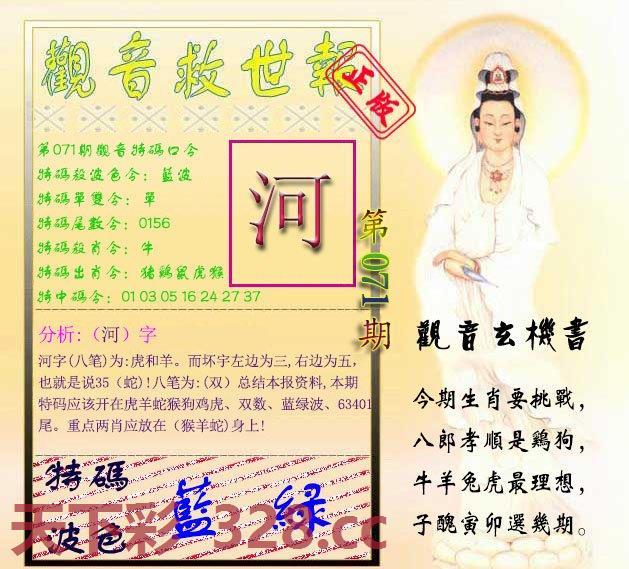 觀音救世報
正版
第071期觀音特碼口令
特碼殺波色令：藍波
特碼單雙令：單
特碼尾數令：0156
特碼殺肖令：牛
特碼出肖令：豬鷄鼠虎猴
特中碼令：01 03 05 16 24 27 37
河
第071期
分析:（河）字
河字(八笔)为:虎和羊。而坏宇左边为三,右边为五，
也就是说35（蛇)!八笔为:(双）总结本报资料,本期
特码应该开在虎羊蛇猴狗鸡虎、双数、蓝绿波、63401
尾。重点两肖应放在（猴羊蛇)身上!
特碼
波色
藍 綠
觀音玄機書
今期生肖要挑戰，
八郎孝順是鷄狗，
牛羊兔虎最理想，
子醜寅卯選幾期。
天下彩 328.cc